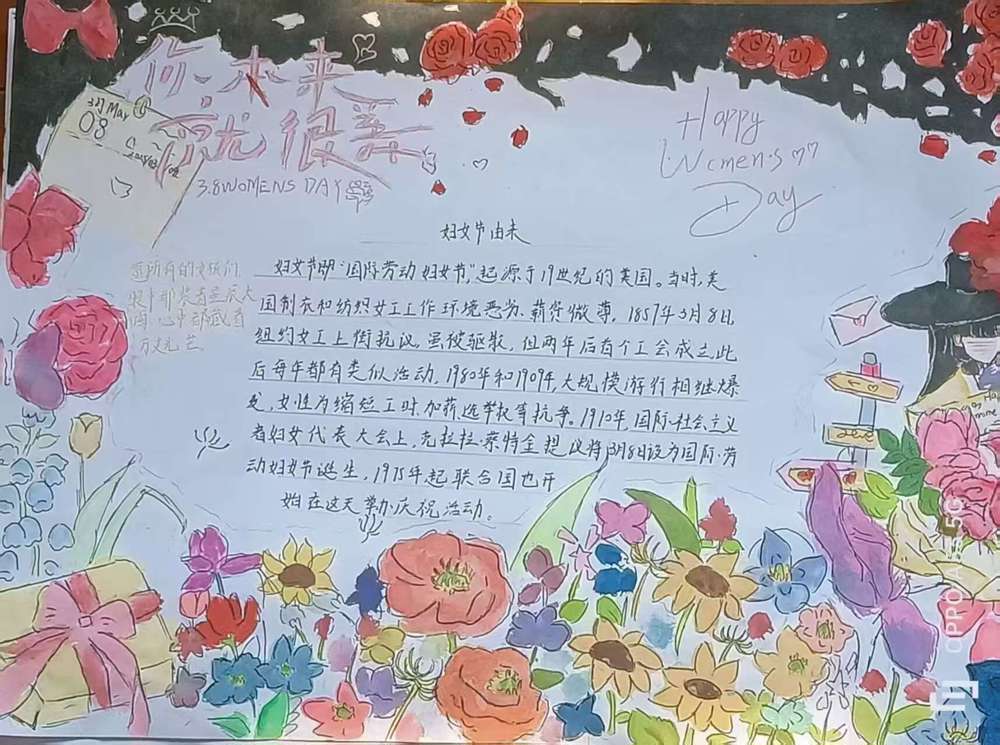 你、本来
就很美
3月May
08
3.8WOMENS DAY
Happy
Women's
Day
妇女节由来
妇女节即"国际劳动妇女节",起源于19世纪的美国。当时,美
国制衣和纺织女工工作环境恶劣、薪资微薄。1857年3月8日
纽约女工上街抗议,虽被驱散,但两年后首个工会成立,此
后每年都有类似活动,1980年和1909年,大规模游行相继爆
发,女性为缩短工时、加薪、选举权等抗争。1910年,国际社会主义
者妇女代表大会上,克拉拉·蔡特金提议将3月8日设为国际劳
动妇女节诞生,1975年起联合国也开
始在这天举办庆祝活动。
愿所有的女孩们
眼中都装着星辰大
海,心中都藏着
万丈光芒
OPPO A55 5G